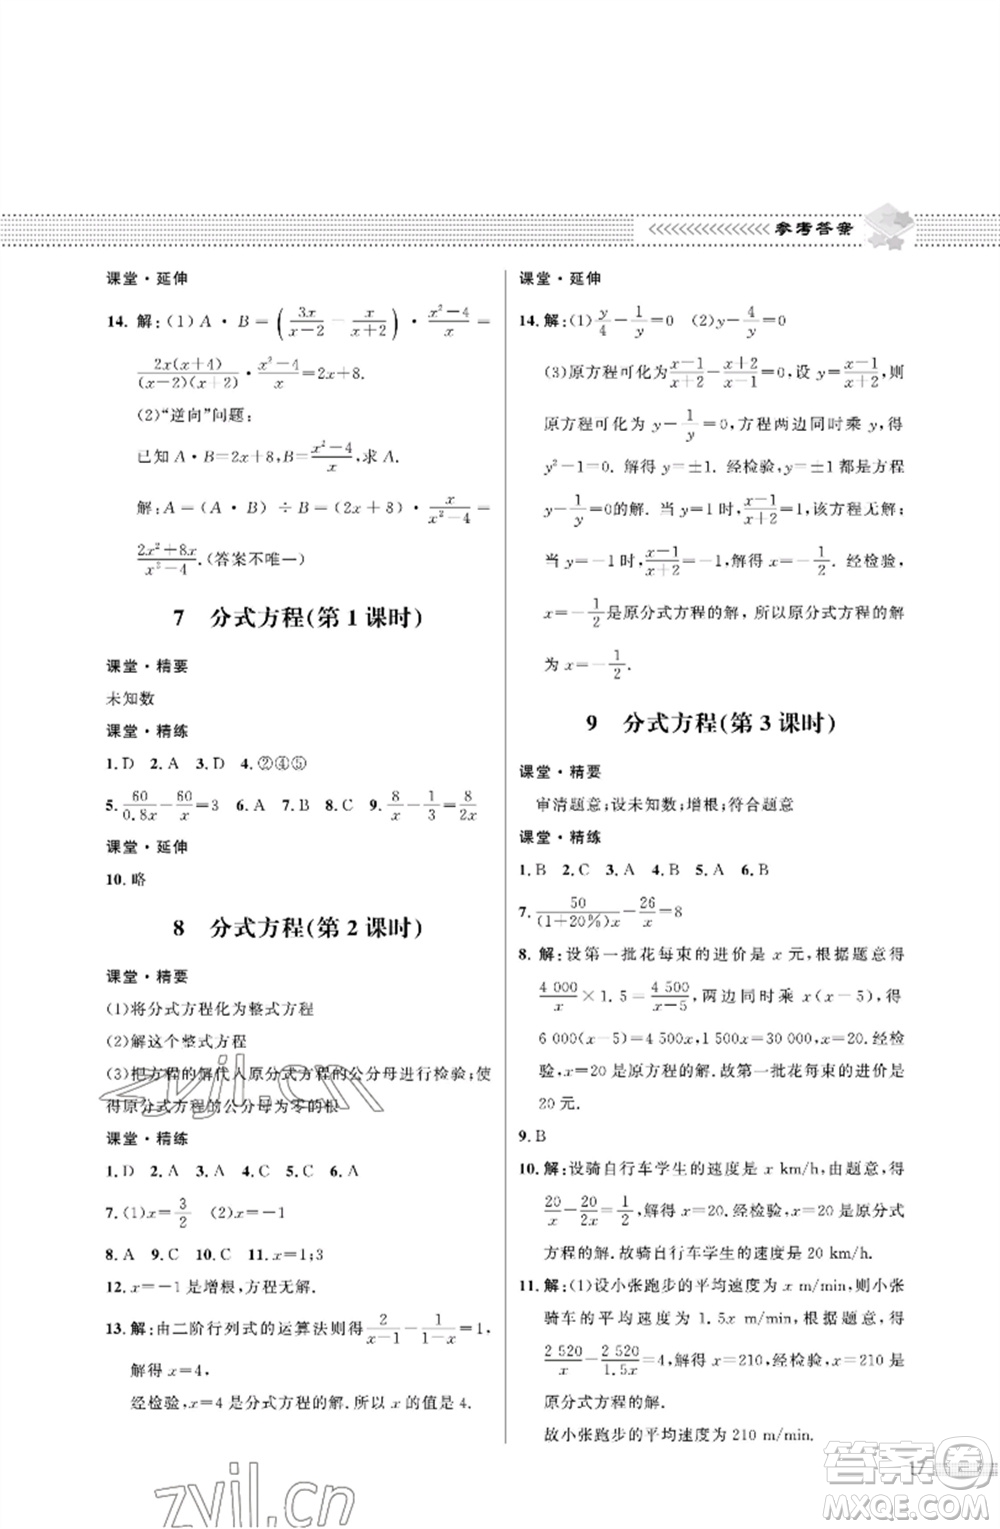 参考答案
课堂·延伸
14. 解:(1)A·B=(3x/(x-2) - x/(x+2))·(x²-4)/x=
2x(x+4)/((x-2)(x+2))·(x²-4)/x=2x+8.
(2)“逆向”问题:
已知 A·B=2x+8,B=(x²-4)/x,求 A.
解:A=(A·B)÷B=(2x+8)·x/(x²-4)=
(2x²+8x)/(x²-4).(答案不唯一)
7 分式方程(第 1 课时)
课堂·精要
未知数
课堂·精练
1. D 2. A 3. D 4. ②④⑤
5. 60/0.8x - 60/x=3 6. A 7. B 8. C 9. 8/x - 1/3=8/2x
课堂·延伸
10. 略
8 分式方程(第 2 课时)
课堂·精要
(1)将分式方程化为整式方程
(2)解这个整式方程
(3)把方程的解代入原分式方程的公分母进行检验;使
得原分式方程的公分母为零的根
课堂·精练
1. D 2. A 3. A 4. C 5. D 6. A
7. (1)x=3/2 (2)x=-1
8. A 9. C 10. C 11. x=1;3
12. x=-1 是增根,方程无解.
13. 解:由二阶行列式的运算法则得 2/(x-1) - 1/(1-x)=1,
解得 x=4,
经检验,x=4 是分式方程的解.所以 x 的值是 4.
课堂·延伸
14. 解:(1)y/4 - 1/y=0 (2)y-4/y=0
(3)原方程可化为(x-1)/(x+2) - (x+2)/(x-1)=0,设 y=(x-1)/(x+2),则
原方程可化为 y-1/y=0,方程两边同时乘 y,得
y²-1=0. 解得 y=±1. 经检验,y=±1 都是方程
y-1/y=0的解. 当 y=1 时,(x-1)/(x+2)=1,该方程无解;
当 y=-1时,(x-1)/(x+2)=-1,解得 x=-1/2. 经检验,
x=-1/2是原分式方程的解,所以原分式方程的解
为 x=-1/2.
9 分式方程(第 3 课时)
课堂·精要
审清题意;设未知数;增根;符合题意
课堂·精练
1. B 2. C 3. A 4. A 5. A 6. B
7. 50/((1+20%)x) - 26/x=8
8. 解:设第一批花每束的进价是 x 元,根据题意得
4 000/x×1.5=4 500/(x-5),两边同时乘 x(x-5),得
6 000(x-5)=4 500x,1 500x=30 000,x=20.经检
验,x=20 是原方程的解.故第一批花每束的进价是
20 元.
9. B
10. 解:设骑自行车学生的速度是 x km/h,由题意,得
20/x - 20/2x=1/2,解得 x=20. 经检验,x=20 是原分式
方程的解.故骑自行车学生的速度是 20 km/h.
11. 解:(1)设小张跑步的平均速度为 x m/min,则小张
骑车的平均速度为 1.5x m/min,根据题意,得
2 520/x - 2 520/1.5x=4,解得 x=210,经检验,x=210 是
原分式方程的解.
故小张跑步的平均速度为 210 m/min.
17
zyjl.cn
zyjl.cn
答案圈
MXQE.COM